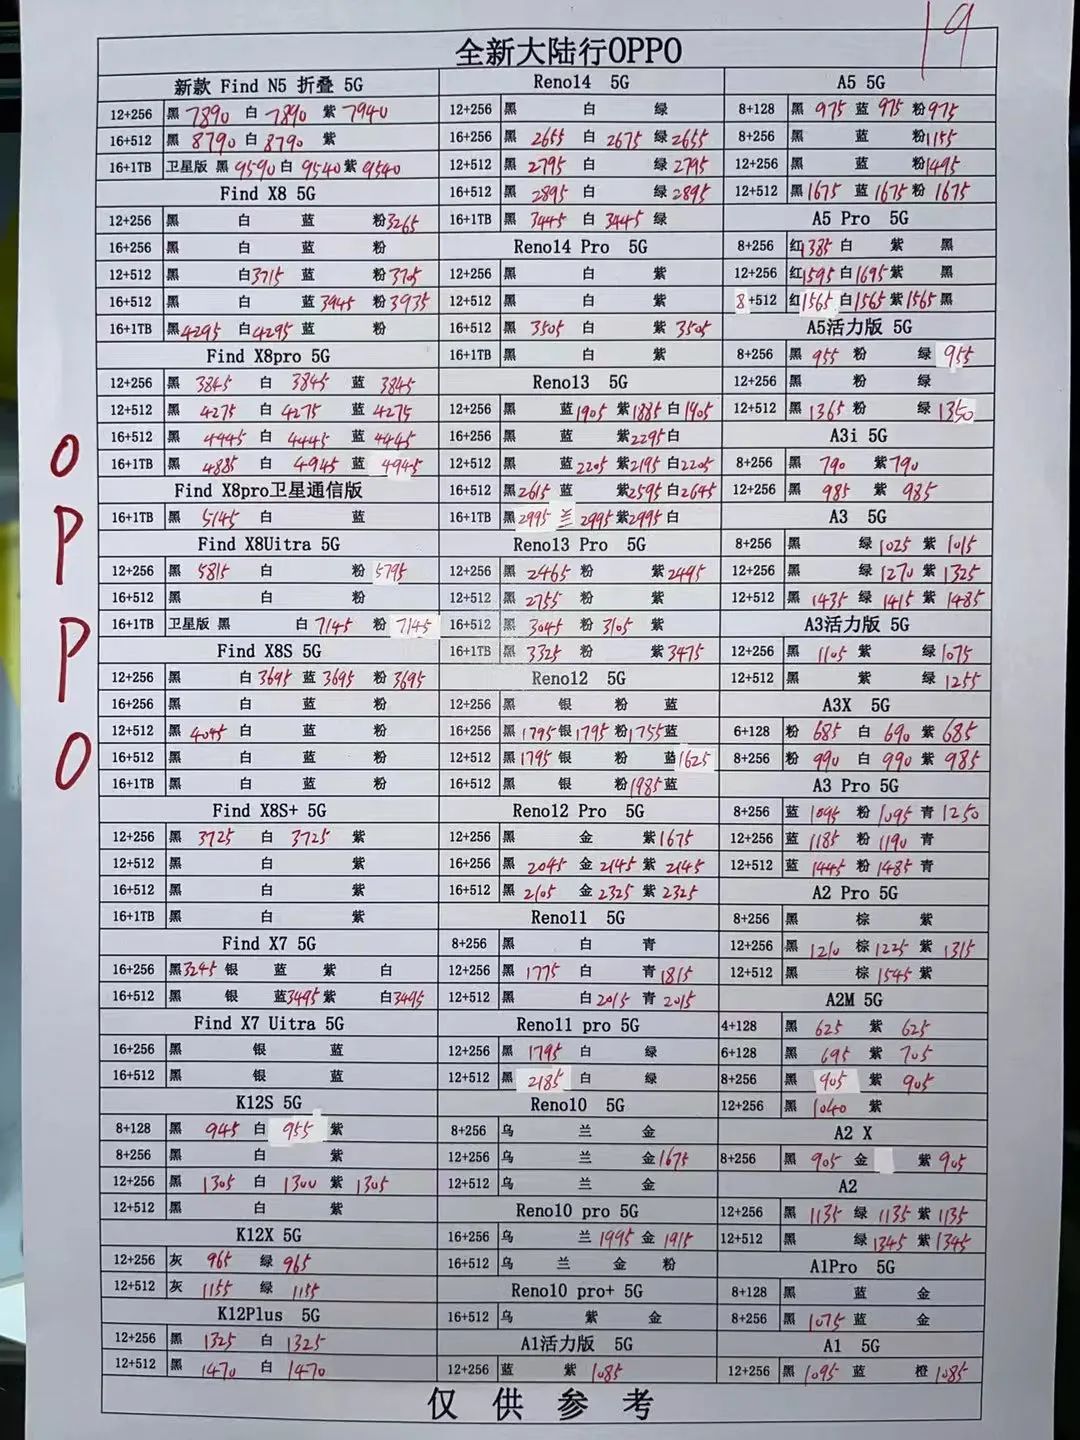 19
全新大陆行OPPO
OPPO
新款 Find N5 折叠 5G
12+256 黑 7890 白 7890 紫 7940
16+512 黑 8790 白 8790 紫
16+1TB 卫星版 黑 9590 白 9540 紫 9540
Find X8 5G
12+256 黑 白 蓝 粉 3265
16+256 黑 白 蓝 粉
12+512 黑 白 3715 蓝 粉 3705
16+512 黑 白 蓝 3945 粉 3935
16+1TB 黑 4295 白 4295 蓝 粉
Find X8pro 5G
12+256 黑 3845 白 3845 蓝 3845
12+512 黑 4275 白 4275 蓝 4275
16+512 黑 4445 白 4445 蓝 4445
16+1TB 黑 4885 白 4945 蓝 4945
Find X8pro卫星通信版
16+1TB 黑 5145 白 蓝
Find X8Uitra 5G
12+256 黑 5815 白 粉 5795
16+512 黑 白 粉
16+1TB 卫星版 黑 白 7145 粉 7145
Find X8S 5G
12+256 黑 白 3695 蓝 3695 粉 3695
16+256 黑 白 蓝 粉
12+512 黑 4045 白 蓝 粉
16+512 黑 白 蓝 粉
16+1TB 黑 白 蓝 粉
Find X8S+ 5G
12+256 黑 3725 白 3725 紫
12+512 黑 白 紫
16+512 黑 白 紫
16+1TB 黑 白 紫
Find X7 5G
16+256 黑 3245 银 蓝 紫 白
16+512 黑 银 蓝 3495 紫 白 3495
Find X7 Uitra 5G
16+256 黑 银 蓝
16+512 黑 银 蓝
K12S 5G
8+128 黑 945 白 955 紫
8+256 黑 白 紫
12+256 黑 1305 白 1300 紫 1305
12+512 黑 白 紫
K12X 5G
12+256 灰 965 绿 965
12+512 灰 1155 绿 1155
K12Plus 5G
12+256 黑 1325 白 1325
12+512 黑 1470 白 1470
Reno14 5G
12+256 黑 白 绿
16+256 黑 2655 白 2675 绿 2655
12+512 黑 2795 白 绿 2795
16+512 黑 2895 白 绿 2895
16+1TB 黑 3445 白 3445 绿
Reno14 Pro 5G
12+256 黑 白 紫
12+512 黑 白 紫
16+512 黑 3505 白 紫 3505
16+1TB 黑 白 紫
Reno13 5G
12+256 黑 蓝 1905 紫 1885 白 1905
16+256 黑 蓝 紫 2295 白
12+512 黑 蓝 2205 紫 2195 白 2205
16+512 黑 2615 蓝 紫 2595 白 2645
16+1TB 黑 2995 兰 2995 紫 2995 白
Reno13 Pro 5G
12+256 黑 2465 粉 紫 2495
12+512 黑 2755 粉 紫
16+512 黑 3045 粉 3105 紫
16+1TB 黑 3325 紫 3475
Reno12 5G
12+256 黑 银 粉 蓝
16+256 黑 1795 银 1795 粉 1755 蓝
12+512 黑 1795 银 粉 蓝 1625
16+512 黑 银 粉 1985 蓝
Reno12 Pro 5G
12+256 黑 金 紫 1675
16+256 黑 2045 金 2145 紫 2145
16+512 黑 2105 金 2325 紫 2325
Reno11 5G
8+256 黑 白 青
12+256 黑 1775 白 青 1815
12+512 黑 白 2015 青 2015
Reno11 pro 5G
12+256 黑 1795 白 绿
12+512 黑 2185 白 绿
Reno10 5G
8+256 乌 兰 金
12+256 乌 兰 金 1675
12+512 乌 兰 金
Reno10 pro 5G
16+256 乌 兰 1995 金 1915
16+512 乌 兰 金 粉
Reno10 pro+ 5G
16+512 乌 紫 金
A1活力版 5G
12+256 蓝 紫 1085
A5 5G
8+128 黑 975 蓝 975 粉 975
8+256 黑 蓝 粉 1155
12+256 黑 蓝 粉 1495
12+512 黑 1675 蓝 1675 粉 1675
A5 Pro 5G
8+256 红 1385 白 紫 黑
12+256 红 1595 白 1695 紫 黑
8+512 红 1565 白 1565 紫 1565 黑
A5活力版 5G
8+256 黑 955 粉 绿 955
12+256 黑 粉 绿
12+512 黑 1365 粉 绿 1350
A3i 5G
8+256 黑 790 紫 790
12+256 黑 985 紫 985
A3 5G
8+256 黑 绿 1025 紫 1015
12+256 黑 绿 1270 紫 1325
12+512 黑 1435 绿 1415 紫 1485
A3活力版 5G
12+256 黑 1105 紫 绿 1075
12+512 黑 紫 绿 1255
A3X 5G
6+128 粉 685 白 690 紫 685
8+256 粉 990 白 990 紫 985
A3 Pro 5G
8+256 蓝 1095 粉 1095 青 1250
12+256 蓝 1185 粉 1190 青
12+512 蓝 1445 粉 1485 青
A2 Pro 5G
8+256 黑 棕 紫
12+256 黑 1210 棕 1225 紫 1315
12+512 黑 棕 1545 紫
A2M 5G
4+128 黑 625 紫 625
6+128 黑 695 紫 705
8+256 黑 905 紫 905
12+256 黑 1040 紫
A2 X
8+256 黑 905 金 紫 905
A2
12+256 黑 1135 绿 1135 紫 1135
12+512 黑 绿 1345 紫 1345
A1Pro 5G
8+128 黑 蓝 金
8+256 黑 1075 蓝 金
A1 5G
12+256 黑 1095 蓝 橙 1085
仅供参考